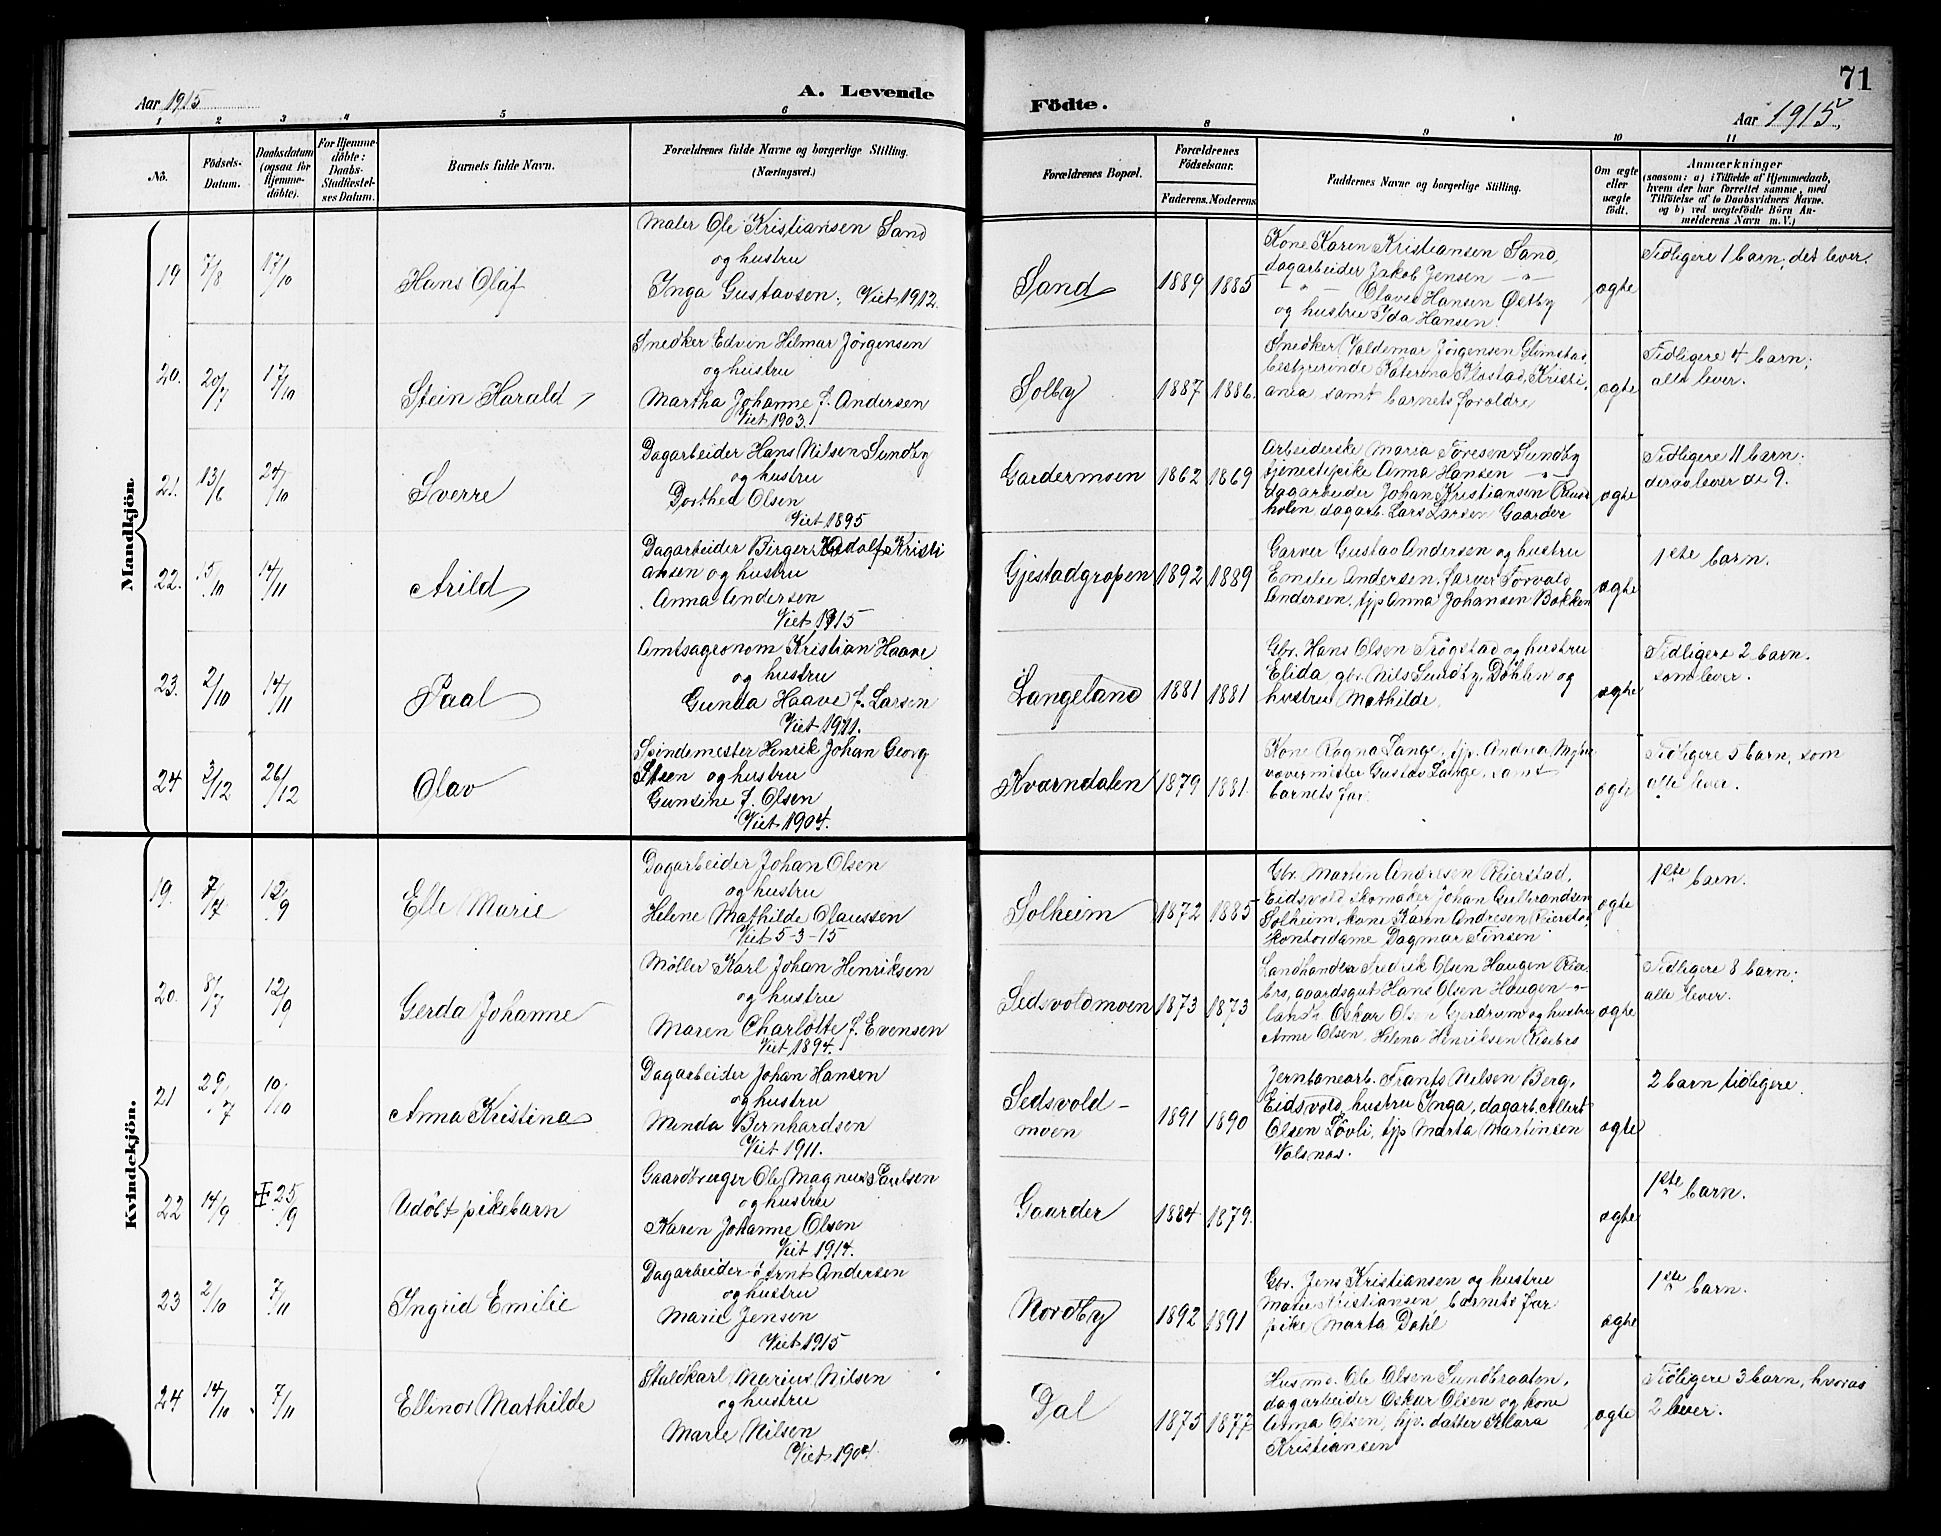 71
Aar 1915
A. Levende
Födte.
Aar 1915
1 2 3 4 5 6 8 9 10 11
No.
Födsels-
Datum.
Daabsdatum
(ogsaa for
Hjemme-
döbte).
For Hjemme-
döbte:
Daabs-
Stadfæstel-
ses Datum.
Barnets fulde Navn.
Forældrenes fulde Navne og borgerlige Stilling.
(Næringsvei.)
Forældrenes Bopæl.
Forældrenes
Födselsaar.
Faderens. Moderens
Faddernes Navne og borgerlige Stilling.
Om ægte
eller
uægte
födt.
Anmærkninger
(saasom: a) i Tilfælde af Hjemmedaab,
hvem der har forrettet samme, med
Tilföielse af to Daabsvidners Navne.
og b) ved uægtefödte Börn An-
melderens Navn m. V.)
Mandkjön
19 7/8 17/10
Hans Olaf
Maler Ole Kristiansen Sand
og hustru
Inga Gustavsen. Viet 1912.
Sand
1889 1885
Kone Karen Kristiansen Sand,
dagarbeider Jakob Jensen — " —
— " — Olaves Hansen Østby
og hustru Ida Hansen.
ægte
Tidligere 1 barn; det lever.
20. 20/7 17/10
Stein Harald
Snedker Edvin Hilmar Jörgensen
og hustru
Martha Johanne f. Andersen
Viet 1903.
Solby
1887 1886.
Snedker Valdemar Jörgensen Glimstad,
bestyrerinde Katerina Klostad, Kristi-
ania samt barnets forældre
ægte
Tidligere 4 barn;
alle lever.
21. 13/6 24/10
Sverre
Dagarbeider Hans Nilsen Sundby
og hustru
Dorthea Olsen
Viet 1895
Gardermoen
1862 1869
Arbeiderske Maria Toresen Sundby
tjenestepike Anna Hansen — " —
dagarbeider Johan Kristiansen
holen, dagarb. Lars Larsen Gaarder
ægte
Tidligere 11 barn;
derav lever de 9.
22. 15/10 14/11
Arild
Dagarbeider Birger Adolf Kristi
ansen og hustru
Anna Andersen
Viet 1915
Gjestadgropen
1892 1889
Garver Gustav Andersen og hustru
Emilie Andersen. Farver Torvald
Andersen, tjp Anna Johansen Bakken
ægte
1ste barn.
23. 2/10 14/11
Paal
Amtsagronom Kristian Haave
og hustru
Gunda Haave f. Larsen
Viet 1911.
Langeland
1881 1881
Gbr. Hans Olsen Trögstad og hustru
Elida, gbr. Nils Sundby, Döhlen og
hustru Mathilde.
ægte
Tidligere 2 barn.
som lever.
24 3/12 26/12
Olav
Spindemester Henrik Johan Georg
Steen og hustru
Gunsine f. Olsen
Viet 1904.
Kværndalen
1879 1881.
Kone Ragna Lange, tjp. Andrea
vævermester Gustav Lange, samt
barnets far.
ægte
Tidligere 5 barn, som
alle lever.
Kvindekjön.
19. 7/7 12/9
Elle Marie
Dagarbeider Johan Olsen
og hustru
Helene Mathilde Olaussen
Viet 5-3-15
Solheim
1872 1885
Gbr. Martin Andresen Reierstad,
Eidsvold skomaker Johan Gulbrandsen
Solheim, kone Karen Andresen Reierstad,
kontordame Dagmar Finsen
ægte
1ste barn.
20. 8/7 12/9
Gerda Johanne
Möller Karl Johan Henriksen
og hustru
Maren Charlotte f. Evensen
Viet 1894.
Sedsvoldmoen
1873 1873
Landhandler Fredrik Olsen Haugen Rise-
bro, gaardsgut Hans Olsen Haugen — " —
landh. Oskar Olsen Gjerdrum og hustru
Anne Olsen, Helena Henriksen Risebro
ægte
Tidligere 8 barn;
alle lever.
21 29/7 10/10
Anna Kristina
Dagarbeider Johan Hansen
og hustru
Minda Bernhardsen
Viet 1911.
Sedsvold-
moen
1891 1890
Jernbanearb. Frants Nilsen Berg,
Eidsvold, hustru Inga, dagarb. Albert
Olsen Lövli, tjp Marta Martinsen
Valsnæs.
ægte
2 barn tidligere.
22 14/9 25/9
Udöbt pikebarn
Gaardbruger Ole Magnus Paulsen
og hustru
Karen Johanne Olsen
Viet 1914.
Gaarder
1884 1879.
ægte
1ste barn.
23 2/10 7/11
Ingrid Emilie
Dagarbeider Arnt Andersen
og hustru
Marie Jensen
Viet 1915
Nordby
1892 1891
Gbr. Jens Kristiansen og hustru
Marie Kristiansen, barnets far
pike Marta Dahl
ægte
1ste barn.
24 14/10 7/11
Ellinor Mathilde
Staldkarl Marius Nilsen
og hustru
Marie Nilsen
Viet 1904
Dal
1875 1877
Husmd. Ole Olsen Sundbraaten,
dagarbeider Oskar Olsen og kone
Anna Olsen, tjp. datter Klara
Kristiansen
ægte
Tidligere 3 barn, hvorav
2 lever.